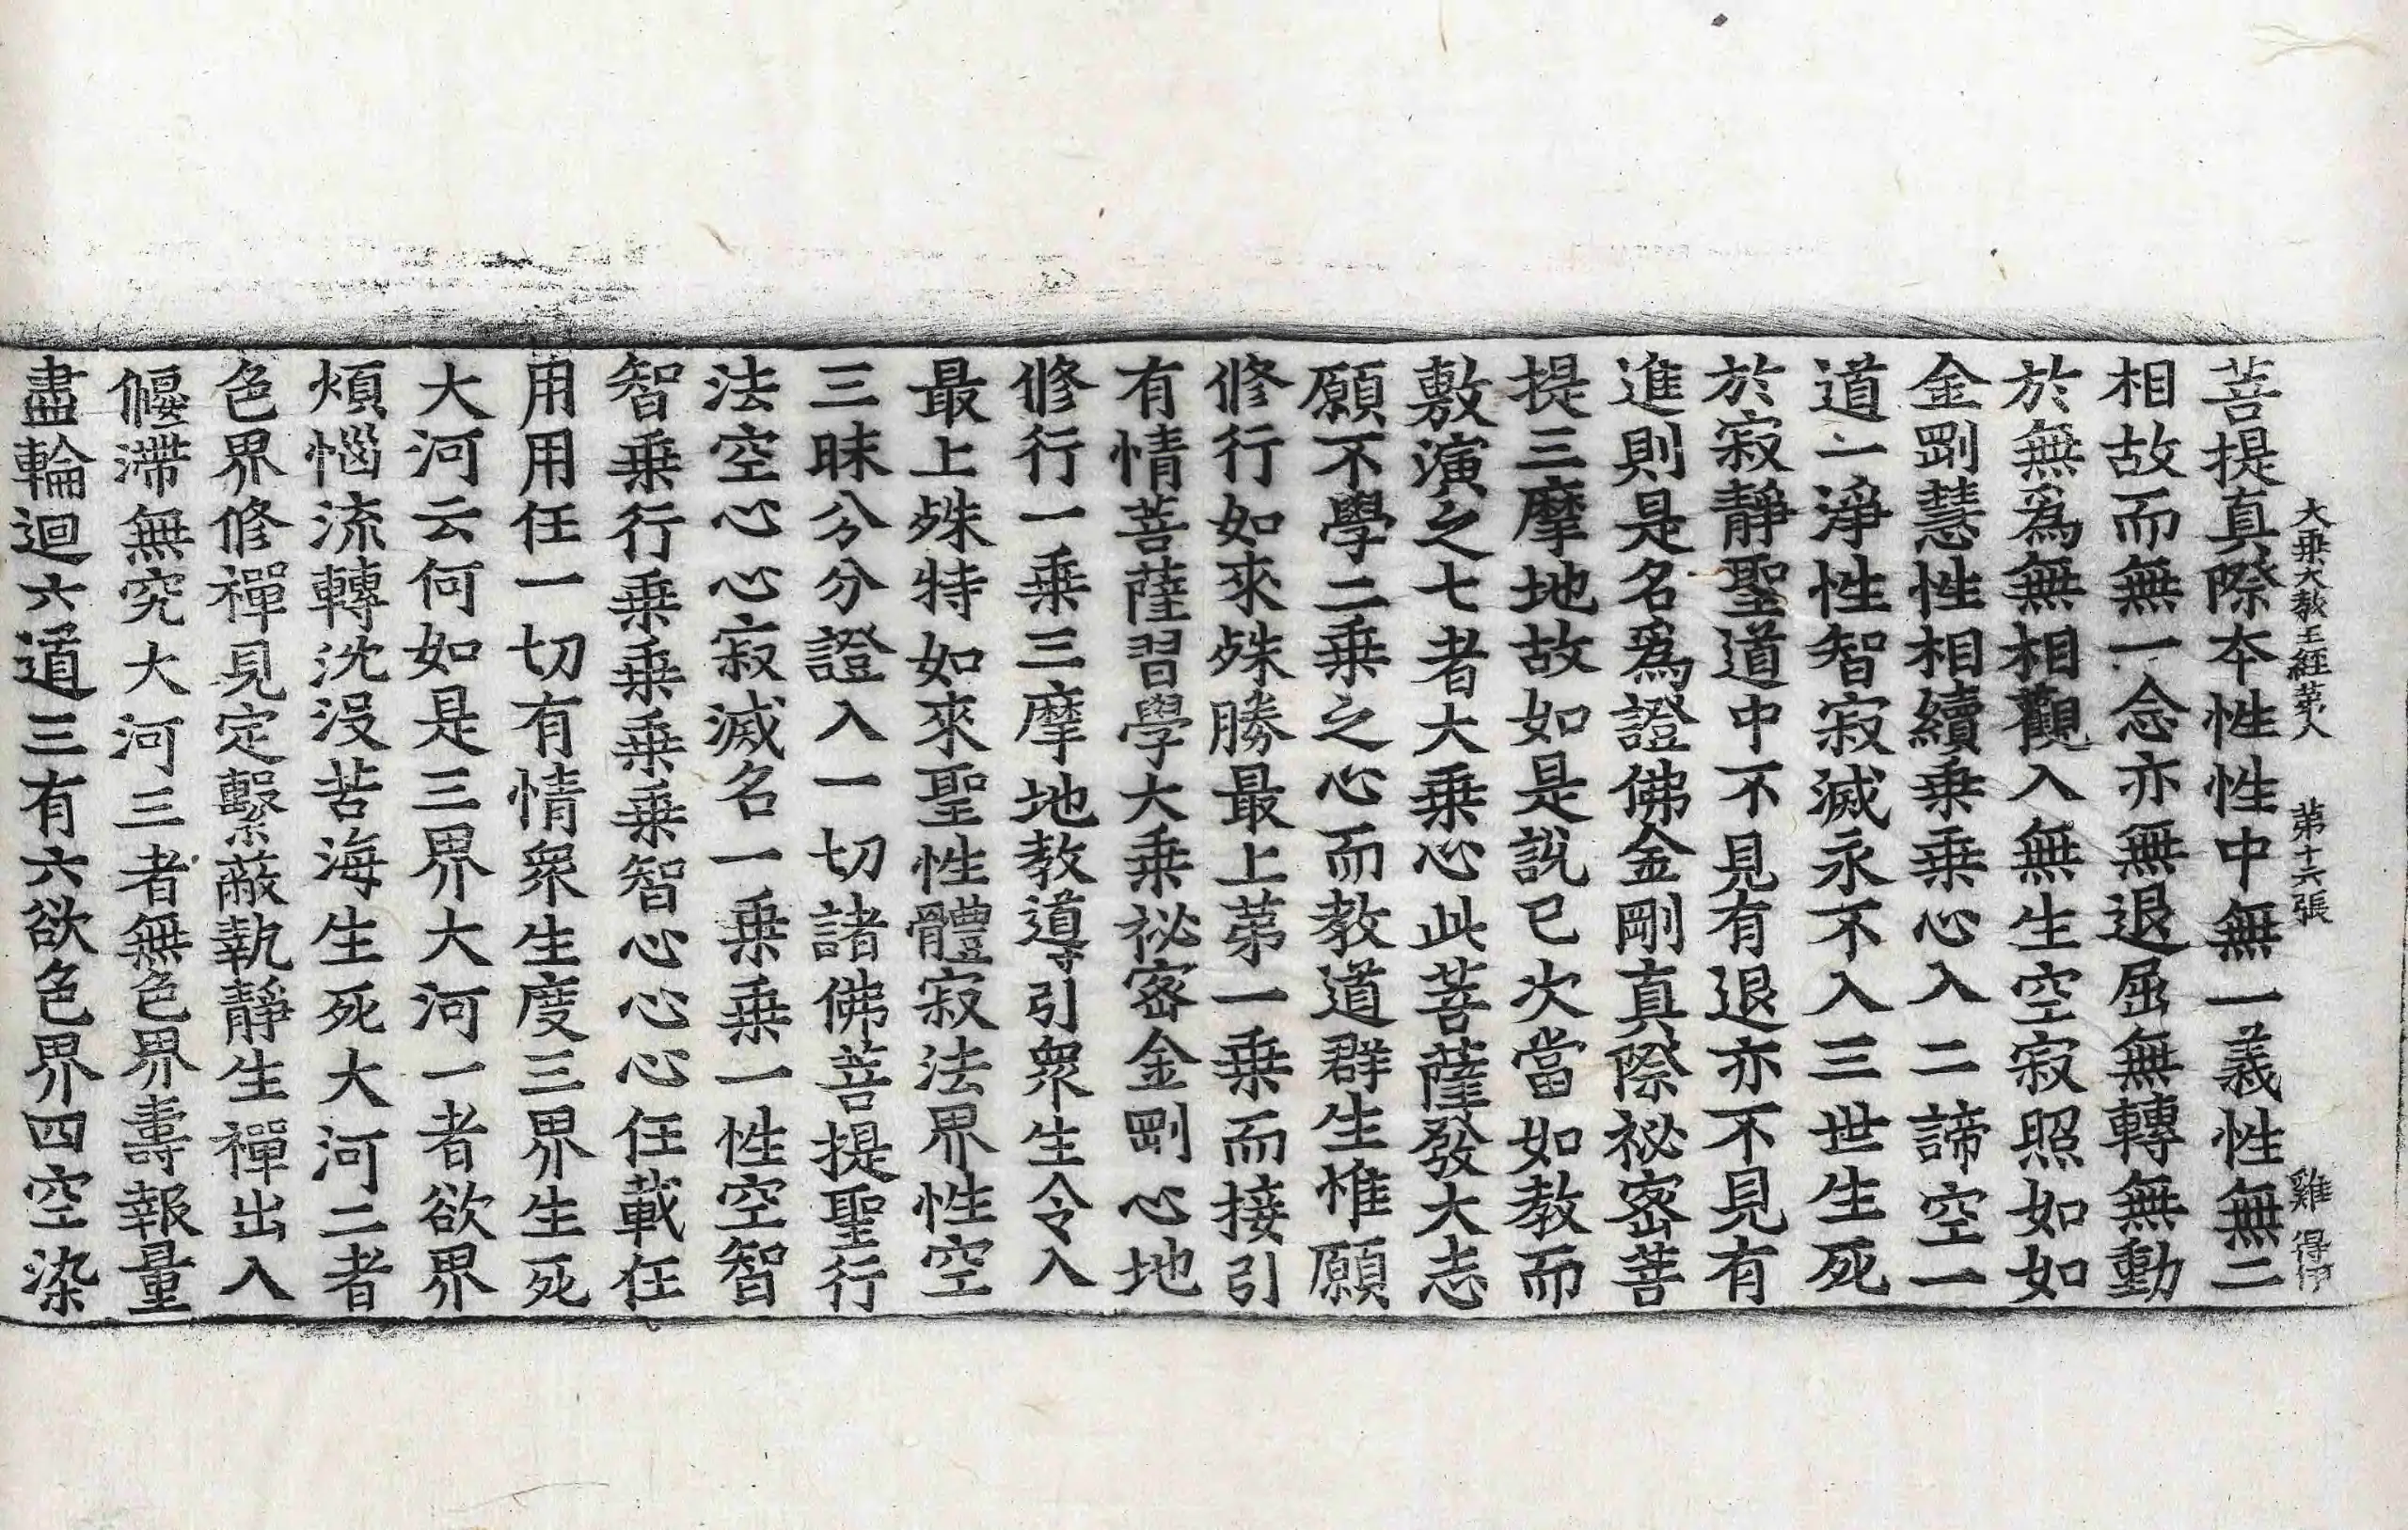 大乘大教王經第八 第十六張 雞 得伊
菩提真際本性性中無一義性無二
相故而無一念亦無退屈無轉無動
於無爲無相觀入無生空寂照如如
金剛慧性相續乘乘心入二諦空一
道一淨性智寂滅永不入三世生死
於寂靜聖道中不見有退亦不見有
進則是名爲證佛金剛真際祕密菩
提三摩地故如是說已次當如教而
敷演之七者大乘心此菩薩發大志
願不學二乘之心而教道群生惟願
修行如來殊勝最上第一乘而接引
有情菩薩習學大乘祕密金剛心地
修行一乘三摩地教導引衆生令入
最上殊特如來聖性體寂法界性空
三昧分分證入一切諸佛菩提聖行
法空心心寂滅名一乘乘一性空智
智乘行乘乘乘乘智心心心任載任
用用任一切有情衆生度三界生死
大河云何如是三界大河一者欲界
煩惱流轉沈没苦海生死大河二者
色界修禪見定繫蔽執靜生禪出入
偃滯無究大河三者無色界壽報量
盡輪迴六道三有六欲色界四空染